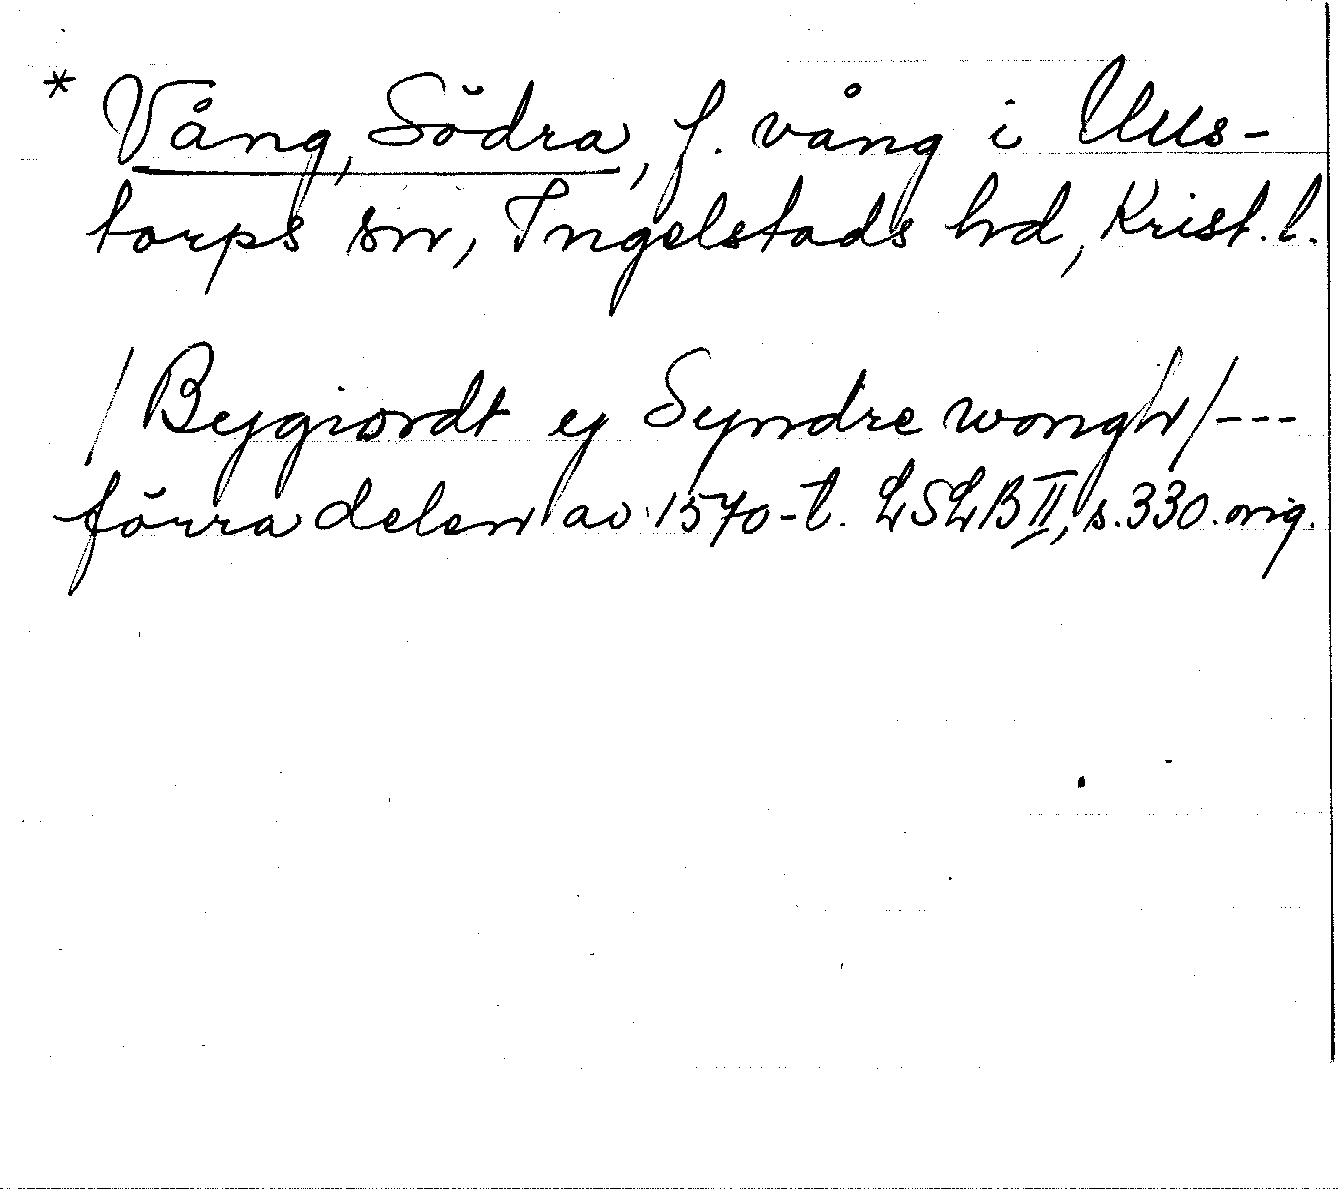 * Vång, Södra, f. vång i Ullstorps
torps sn, Ingelstads hd, Krist. l.
/Bygiordt ey Syndre wongh/---
förra delen av 1570-t. LSLB II, s. 330. orig.